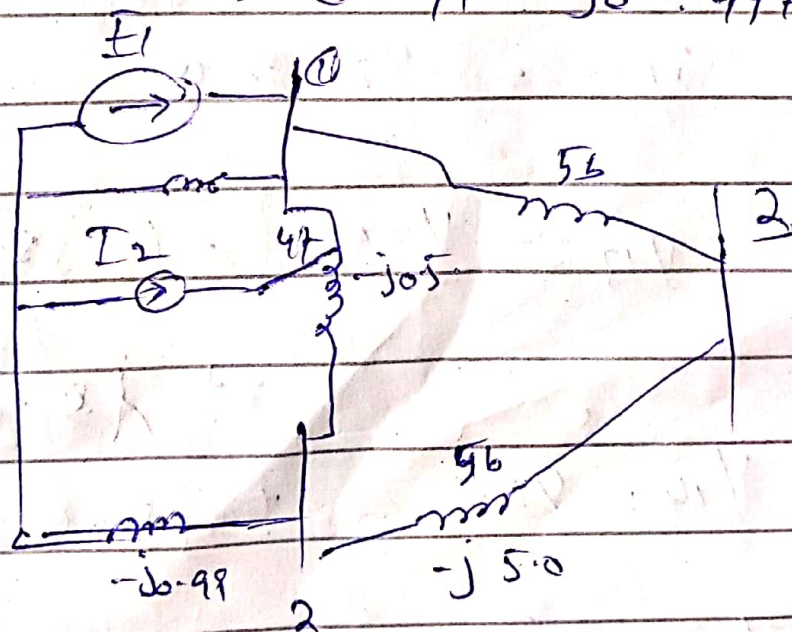 I1
①
5b
3
I2
47
-j05
5b
-j0.99
-j 5.0
2